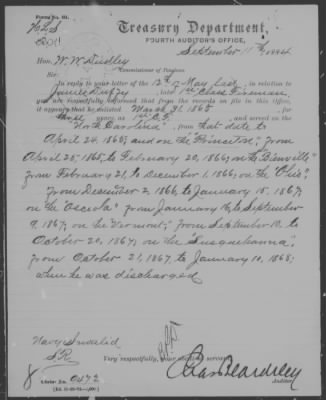 Form No. 61.
Treasury Department,
FOURTH AUDITOR'S OFFICE,
September 11th, 1884
Hon. W. W. Dudley
Commissioner of Pensions.
Sir:
In reply to your letter of the 12th of May last, in relation to
James Duffy, late 1st Class Fireman,
you are respectfully informed that from the records on file in this office,
it appears that he enlisted March 31, 1865 for
three years as 1st C. F., and served on the
"North Carolina", from that date to
April 24, 1865; and on the "Princeton", from
April 25, 1865, to February 20, 1866; on the "Bienville"
from February 21, to December 1, 1866; on the "Ohio,"
from December 2, 1866, to January 15, 1867;
on the "Osceola" from January 16, to September
9, 1867; on the "Vermont," from September 10, to
October 20, 1867; on the "Susquehanna,"
from October 21, 1867, to January 10, 1868;
when he was discharged
Navy Invalid
Very respectfully, your obedient servant,
Auditor.
8